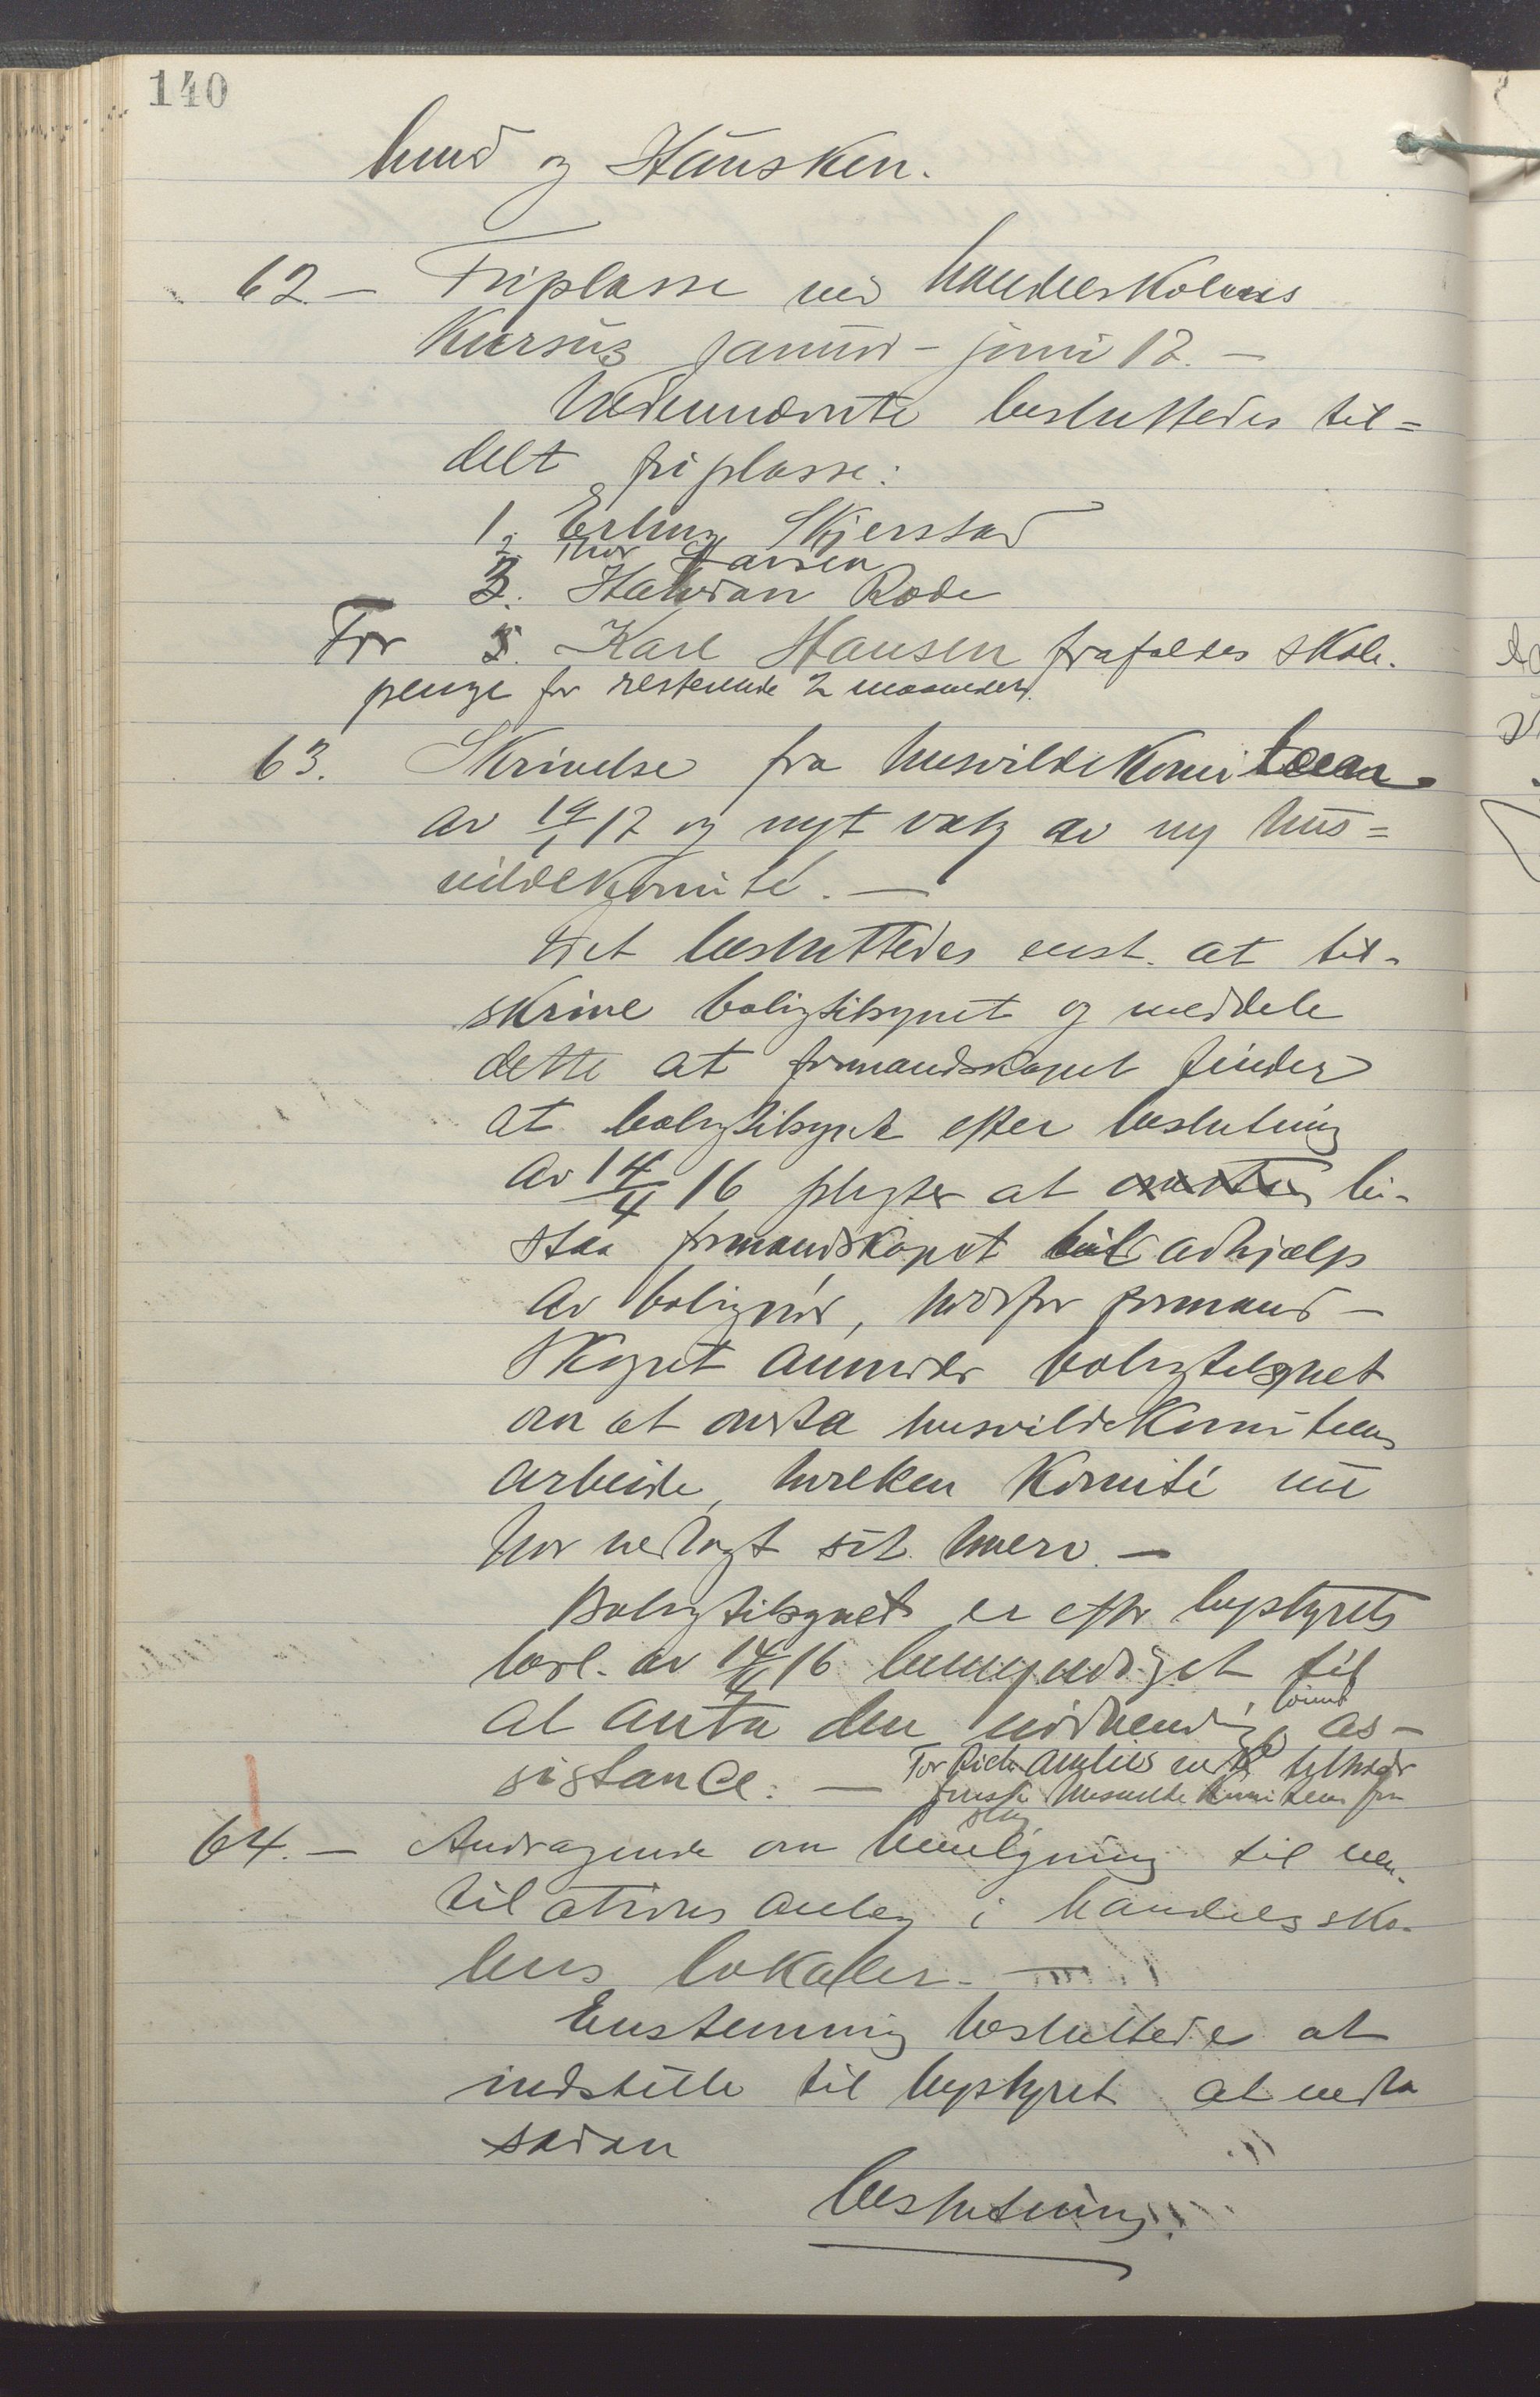 140
lund og Hausken.
62. — Friplasse ved handelsskolens
kursus januar – juni 17. —
Nedennævnte besluttedes til=
delt friplasse:
1. Erling Skjerstad
2. Thor Larsen
3. Halvdan Rode
For Karl Hansen frafaldes skole-
penge for resterende 2 maaneder.
63. Skrivelse fra husvildekomiteen
av 19/1 17 og nyt valg av ny hus=
vildekomite. —
Det besluttedes enst. at til-
skrive boligtilsynet og meddele
dette at formandskapet finder
at boligtilsynet efter beslutning
av 14/4 16 pligter at bi-
staa formandskapet avhjælp
av bolignød, hvorfor formand-
skapet anmoder boligtilsynet
om at overta husvildekomiteens
arbeide, hvilken komité nu
har nedlagt sit hverv. —
Boligtilsynet er efter bystyrets
besl. av 14/4 16 bemyndiget til
at anta den nødvendige, lønnet as-
sistance. —
husvildekomiteen fra
64. — Andragende om bevilgning til ven-
tilationsanlæg i handelssko-
lens lokaler. —
Enstemmig besluttedes at
indstille til bystyret at vedta
sådan
beslutning.